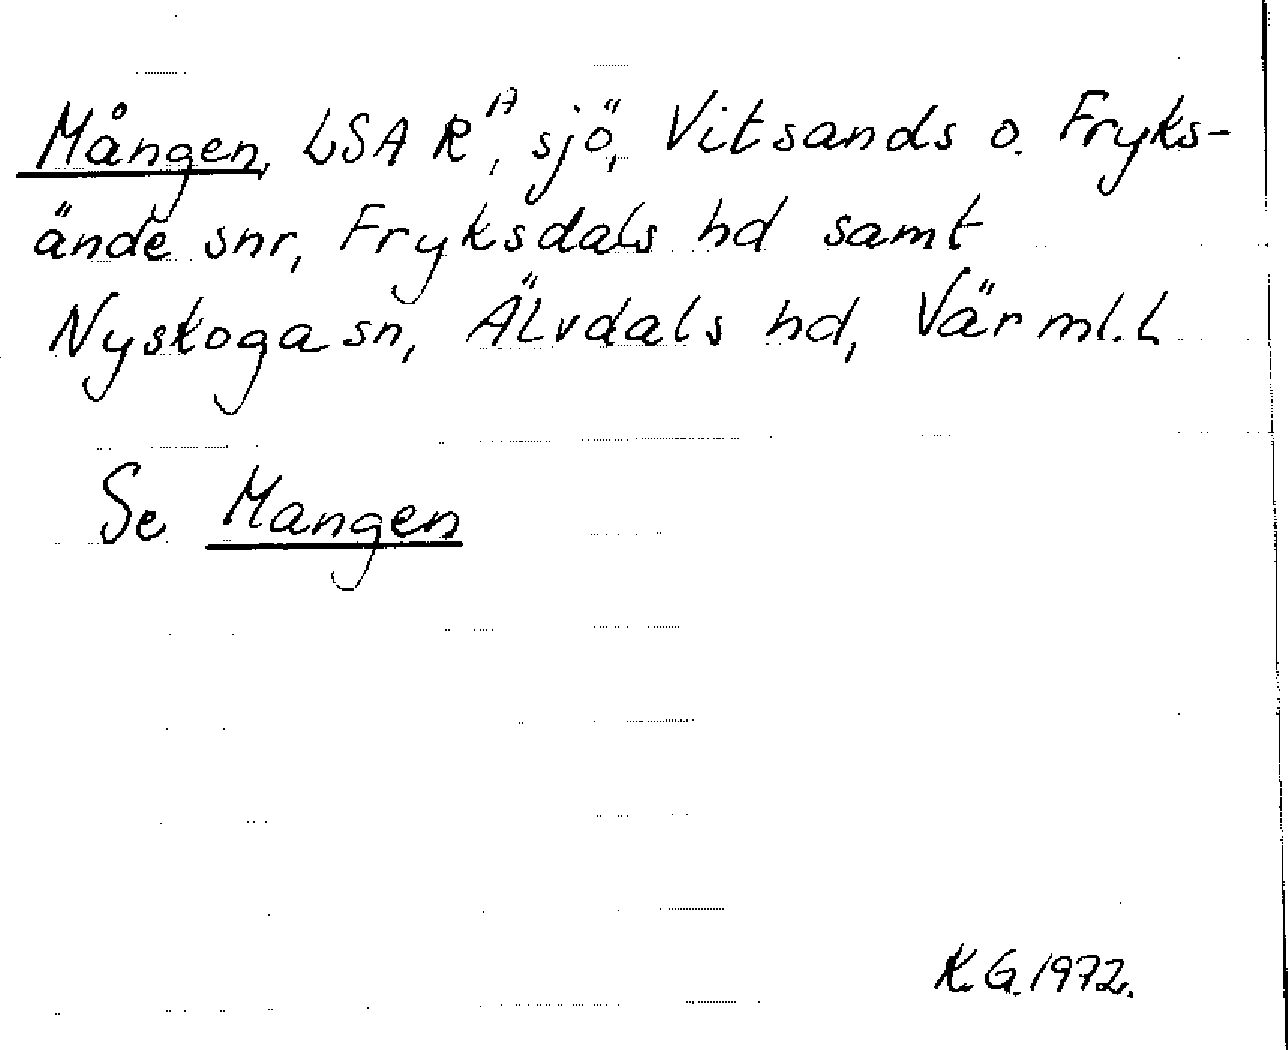 Mången, LSA R^A, sjö, Vitsands o. Fryks-
ände snr, Fryksdals hd samt
Nyskoga sn, Älvdals hd, Värml. L
Se Mangen
K.G. 1972.